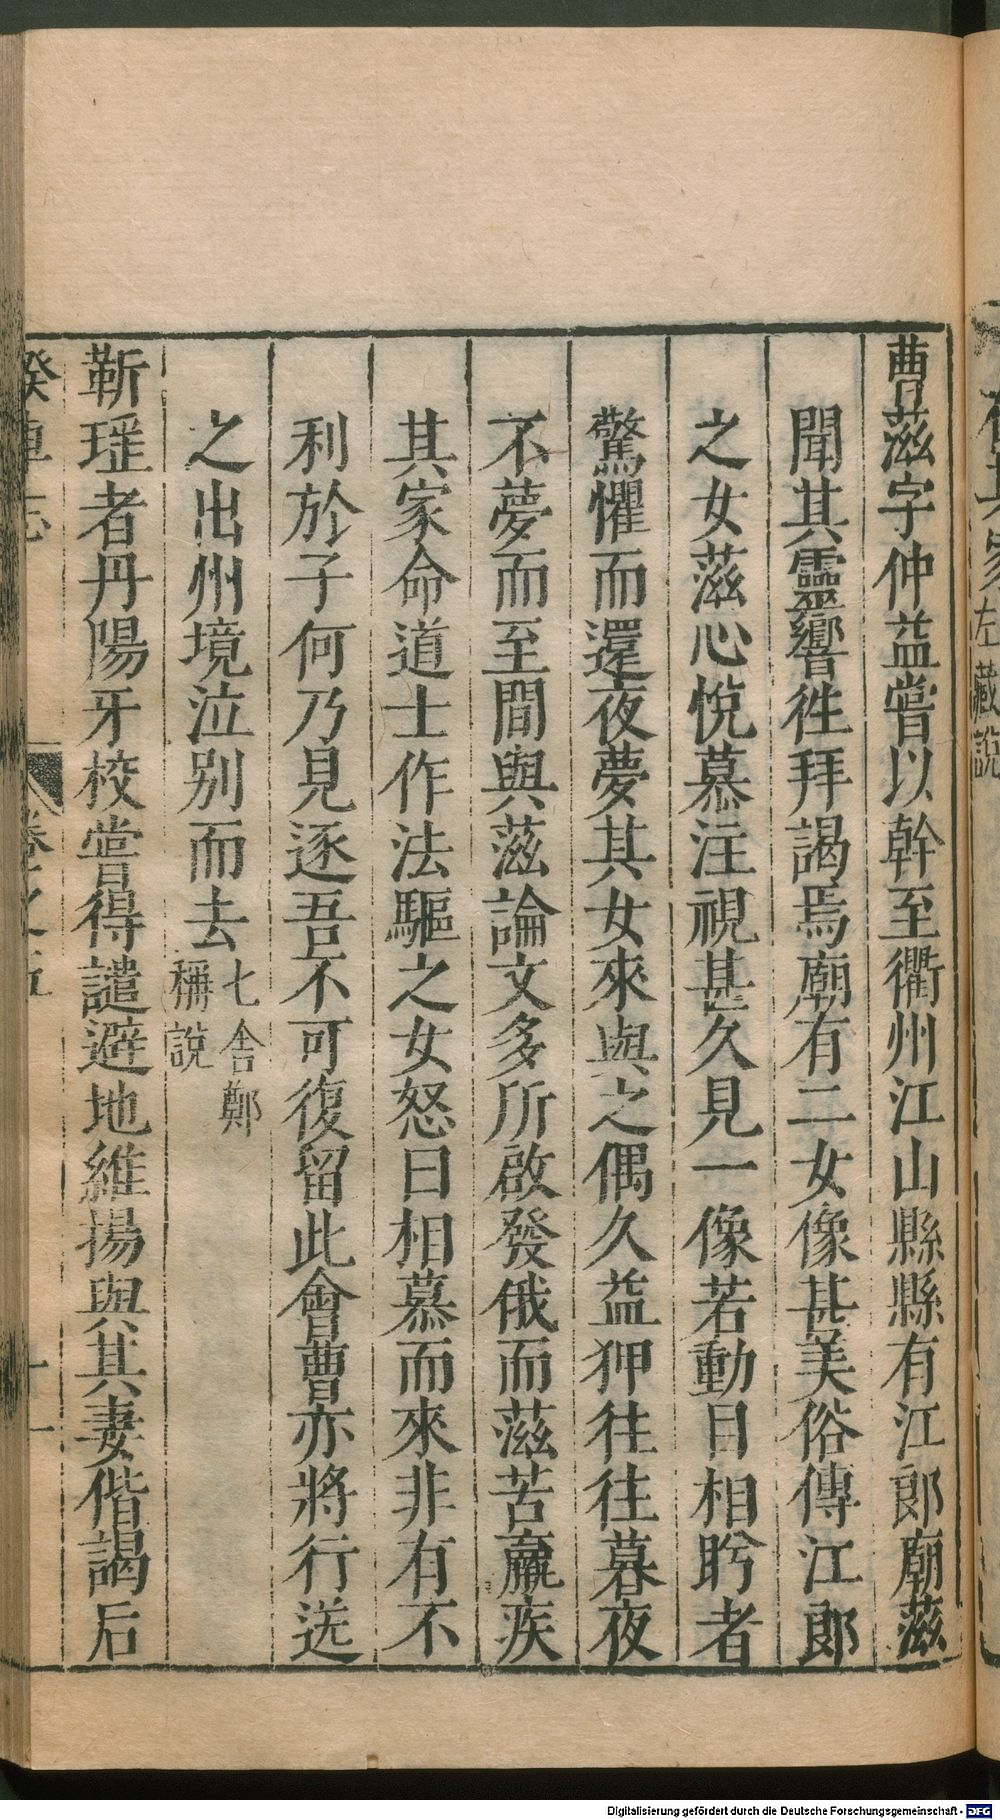 曹蒎字仲益嘗以幹至衢州江山縣縣有江郎廟蒎
聞其靈響徃拜謁焉廟有二女像甚美俗傳江郎
之女蒎心悅慕注視甚久見一像若動目相盻者
驚懼而還夜夢其女來與之偶久益狎往往暮夜
不夢而至間與蒎論文多所啟發俄而蒎苦羸疾
其家命道士作法驅之女怒曰相慕而來非有不
利於子何乃見逐吾不可復留此會曹亦將行送
之出州境泣别而去七舍鄭
稱說
靳瑶者丹陽牙校嘗得譴避地維揚與其妻偕謁后
睽車志
卷之五
十一
左藏說
Digitalisierung gefördert durch die Deutsche Forschungsgemeinschaft - DFG